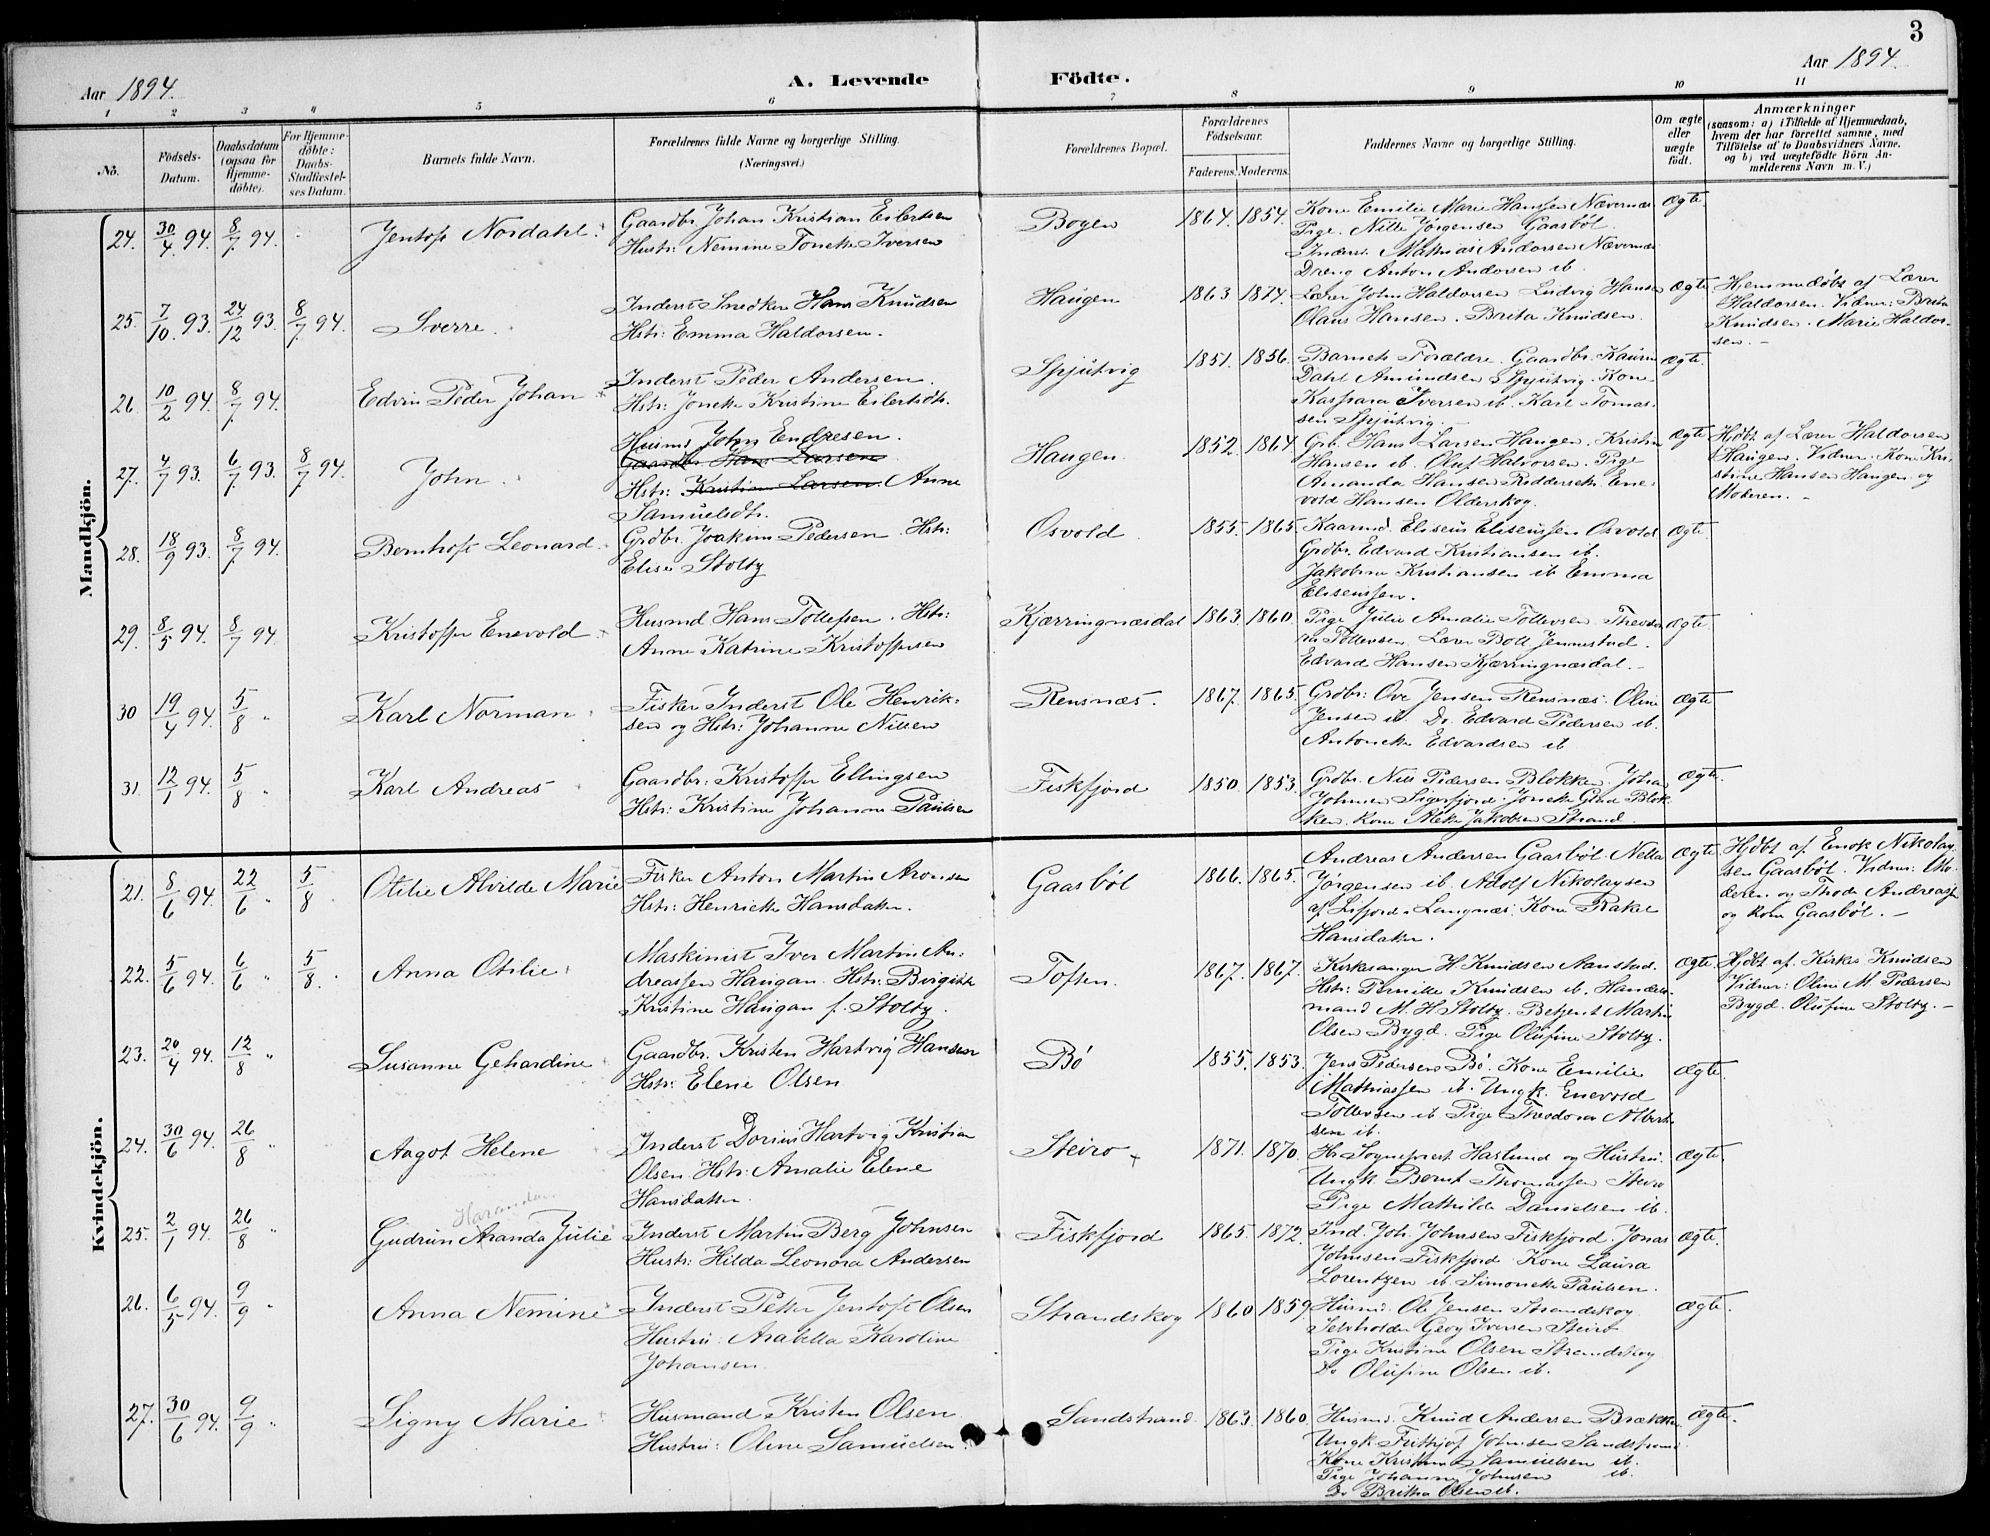 3
Aar 1894.
A. Levende Födte.
Aar 1894.
1 2 3 4 5 6 7 8 9 10 11
No.
Födsels-Datum.
Daabsdatum (ogsaa for Hjemme-döbte).
For Hjemme-döbte: Daabs-Stadfæstel-ses Datum.
Barnets fulde Navn.
Forældrenes fulde Navne og borgerlige Stilling.
(Næringsvei.)
Forældrenes Bopæl.
Forældrenes Födselsaar.
Faderens. Moderens.
Faddernes Navne og borgerlige Stilling.
Om ægte eller uægte födt.
Anmærkninger
(saasom: a) i Tilfælde af Hjemmedaab,
hvem der har forrettet samme, med
Tilföielse af to Daabsvidners Navne.
og b) ved uægtefödte Börn An-
melderens Navn m. V.)
Mandkjön.
24. 30/4 94. 8/7 94. Jentoft Nordahl.
Gaardbr. Johan Kristian Eilertsen
Hustr: Nemine Toneke Iversen
Bogen 1864. 1854.
Kone Emilie Marie Hanssen Nævernæs
Pige. Nille Jörgensen Gaasböl.
Inders. Mathias Andorsen Nævernæs
Dreng Anton Andorsen ib.
Ægte
25. 7/10. 93. 24/12 93. 8/7 94. Sverre.
Inderst Snedker Hans Knudsen
Hst: Emma Haldorsen.
Haugen 1863. 1874.
Lærer John Haldorsen Ludvig Hansen
Olaus Hansen. Brita Knudsen.
Ægte
Hjemmedöbt af Lærer
Haldorsen. Vidner: Brita
Knudsen. Marie Haldor-
sen. -
26. 10/2 94. 8/7 94. Edvin Peder Johan
Inderst Peder Andersen.
Hst: Joneke Kristine Eilertsdt.
Spjutvig 1851. 1856.
Barnets Forældre. Gaardbr. Kaurin
Dahl Amundsen Spjutvig. Kone
Kaspara Iversen ib. Karl Tomas-
sen Spjutvig. -
Ægte.
27. 4/7 93. 6/7 93. 8/7 94. John.
Husmd John Endresen.
Gaardbr Hans Larsen
Hst: Kristine Larsen. Anne
Samuelsdtr.
Haugen. 1852. 1864.
Grb. Hans Larsen Haugen. Kristine
Hansen ib. Oluf Halvorsen. Pige
Amanda Hansen Reddersek. Ene-
vold Hansen Olderskog.
Ægte
Hjdbt. af Lærer Haldorsen
Haugen. Vidner: Kone Kri-
stine Hansen Haugen og
Moderen. -
28. 18/9 93. 8/7 94. Bernhoft Leonard.
Grdbr. Joakim Pedersen. Hst:
Elise Stolty
Osvold 1855. 1865.
Kaarmd. Eliseus Eliseussen Osvold
Grdbr. Edvard Kristiansen ib.
Jakobine Kristiansen ib Emma
Eliseussen.
Ægte.
29. 8/5 94. 8/7 94 Kristoffer Enevold
Husmd Hans Tollefsen. Hst:
Anne Katrine Kristoffersen
Kjærringnæsdal 1863. 1860.
Pige Julie Amalie Tollevsen. Theodo-
ra Tollevsen. Lærer Boll Jennestad.
Edvard Hansen Kjærringnæsdal. -
Ægte
30 19/4 94. 5/8 " Karl Norman
Fisker Inderst Ole Henrik-
sen og Hst: Johanne Nilsen
Rensnæs. 1867. 1865.
Grdbr: Ove Jensen Rensnæs. Oline
Jensen ib Do. Edvard Pedersen ib.
Antoneke Edvardsen ib
Ægte
31. 12/1 94. 5/8 " Karl Andreas
Gaardbr: Kristoffer Ellingsen
Hst: Kristine Johanne Paulsen
Fiskfjord 1850. 1853.
Grdbr. Nils Pedersen Blokken. Johan
Johnsen Sigerfjord. Joneke Blok-
ken. Kone Jakobsen Strand.
Ægte.
Kvindekjön.
21. 8/6 94. 22/6 " 5/8 . Otilie Alvilde Marie
Fisker Anton Martin Aronsen
Hst: Henrikke Hansdatter.
Gaasböl 1866. 1865.
Andreas Andersen Gaasböl. Nella
Jörgensen ib. Adolf Nikolaysen
af Lifjord. Langnæs. Kone Rakel
Hansdatter.
Ægte
Hjdbt af Enok Nikolay-
sen Gaasböl. Vidner: Mo-
deren og Andreassen
og Kone Gaasböl. -
22. 5/6 94. 6/6 " 5/8 . Anna Otilie
Maskinist Iver Martin An-
dreassen Haugan. Hst: Birgitte
Kristine Haugan f. Stolty.
Toften. 1867. 1867.
Kirkesanger H. Knudsen Aanstad.
Hst: Pernille Knudsen ib. Handels-
mand M. H. Stolty. Betjent Martin
Olsen Bygd. Pige Olufine Stolty.
Ægte.
Hjdbt af Kirkes Knudsen
Vidner: Oline M. Pedersen
Bygd. Olufine Stolty. -
23. 20/4 94. 12/8 " Susanne Gehardine
Gaardbr. Kristen Hartvig Hansen
Hst: Elene Olsen
Bö 1855. 1853.
Jens Pedersen Bö. Kone Emilie
Mathiassen ib. Ungk. Enevold
Tollevsen ib Pige Theodora Albert-
sen ib.
Ægte.
24. 30/6 94. 26/8 " Aagot Helene
Inderst Dorius Hartvig Kristian
Olsen. Hst: Amalie Elene
Hansdatter.
Steiro 1871. 1870.
Hr. Sogneprest Haslund og Hustru.
Ungk Bernt Thomassen Steiro
Pige Mathilde Danielsen ib.
Ægte.
Haranda
25. 2/1 94. 26/8 " Gudrun Aranda Julie
Inderst Martin Berg Johnsen
Hustr: Hilda Leonora Andersen
Fiskfjord 1865. 1872.
Ind. Joh. Johnsen Fiskfjord. Jonas
Johnsen Fiskfjord Kone Laura
Lorentzen ib Simoneke Paulsen.
Ægte.
26. 6/5 94. 9/9 " Anna Nemine
Inderst Peter Jentoft Olsen
Hustru: Arabella Karoline
Johansen.
Strandskog 1860 1859.
Husmd. Ole Jensen Strandskog
Selvholder Georg Iversen Steiro
Pige Kristine Olsen Strandskog
Do Olufine Olsen ib.
Ægte.
27. 30/6 94. 9/9 " Signy Marie
Husmand Kristen Olsen
Hustru: Oline Samuelsen.
Sandstrand. 1863. 1860.
Husmd. Knud Andersen Brækken
Ungk Fritjof Johnsen Sandstrand
Kone Kristine Samuelsen ib.
Pige Johanna Johnsen ib.
Do Britha Olsen ib.
Ægte.